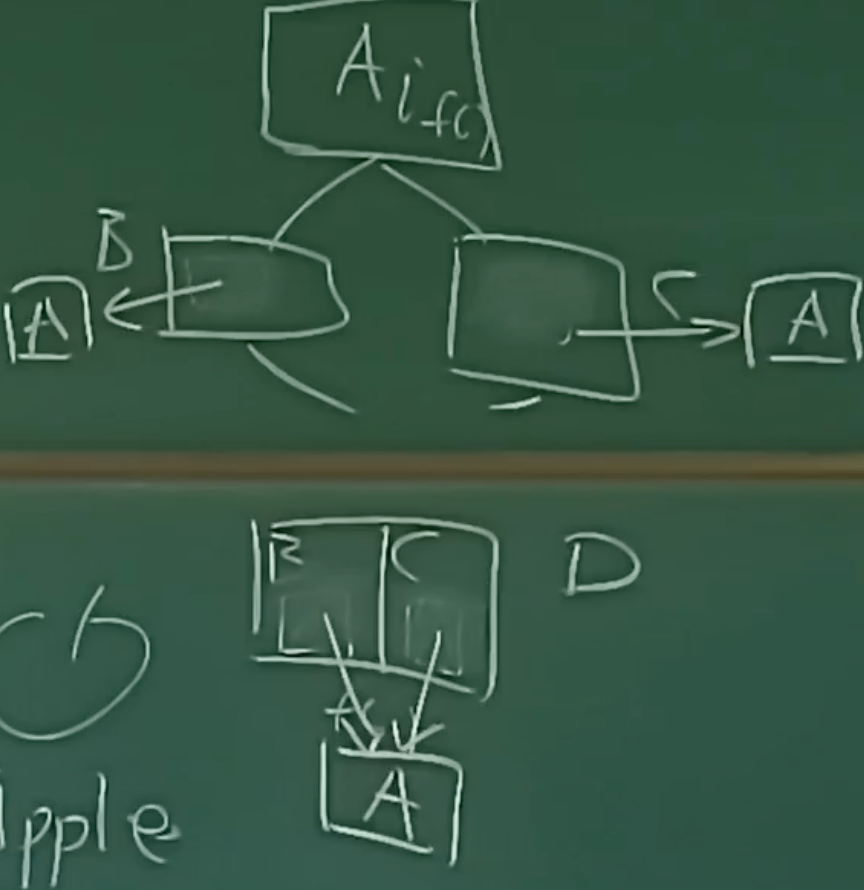 A i f()
B
A
C
A
B C
D
A
Apple